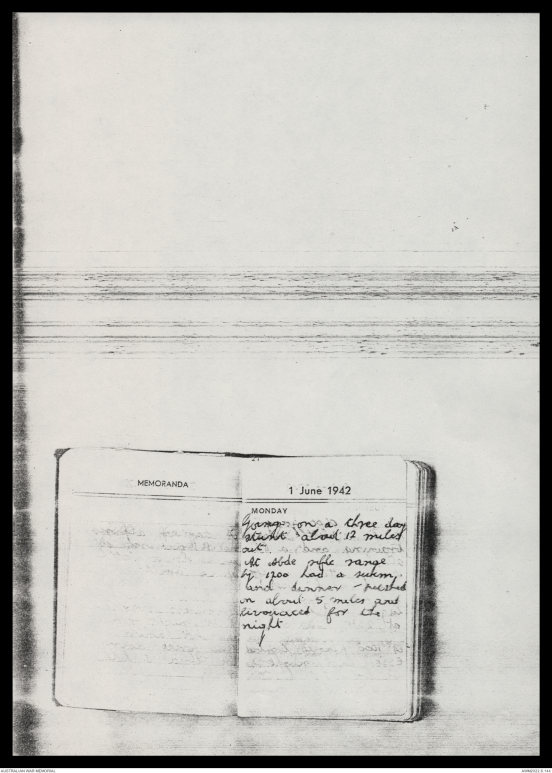 MEMORANDA
1 June 1942
MONDAY
Going on a three day
stunt about 12 miles
out
At Abde rifle range
by 1200 had a swim
and dinner - pushed
on about 5 miles and
bivouaced for the
night
AUSTRALIAN WAR MEMORIAL